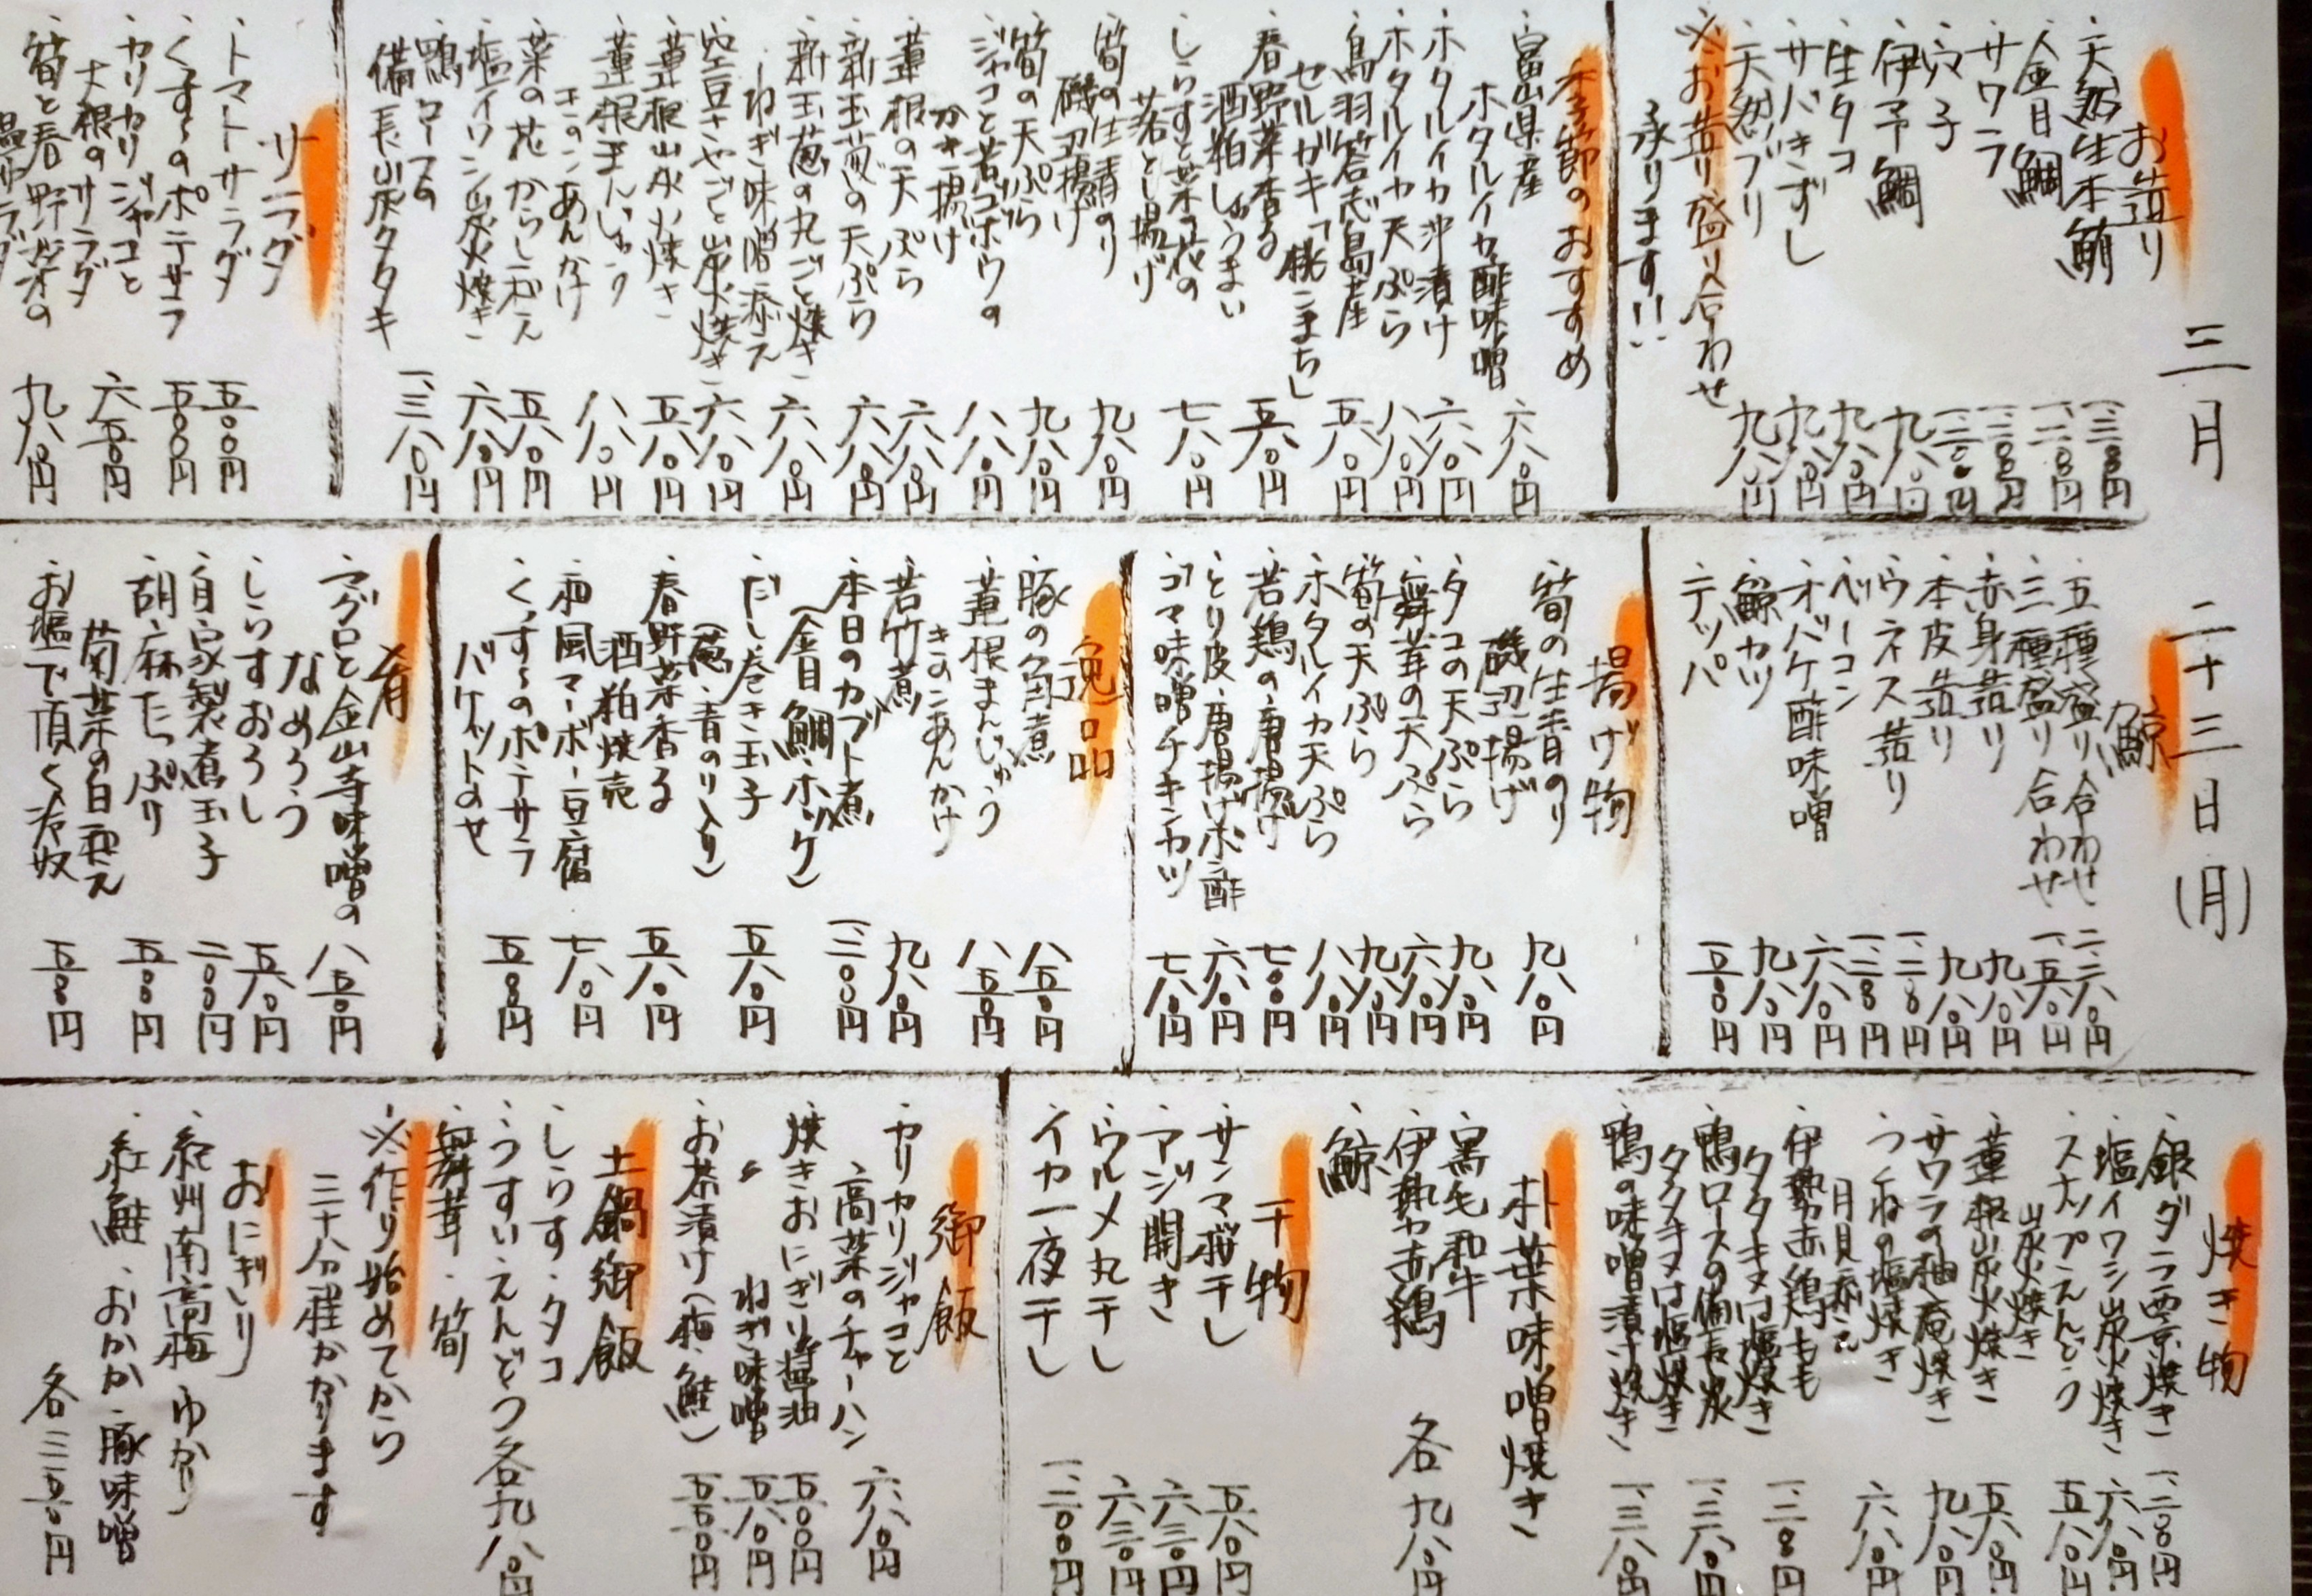 三月 二十三日(月)
お造り
・天然生本鮪
・金目鯛
・サワラ
・穴子
・伊予鯛 九八〇円
・生タコ 九八〇円
・サバきずし 九八〇円
・天然ブリ 九八〇円
※お造り盛り合わせ
承ります!!
季節のおすすめ
・富山県産
ホタルイカ酢味噌 六八〇円
・ホタルイカ沖漬け 六八〇円
・ホタルイカ天ぷら 八八〇円
・鳥羽答志島産
セルガキ「桃こまち」 五八〇円
・春野菜香る
酒粕しゅうまい 五八〇円
・しらすと菜の花の
落とし揚げ 七八〇円
・筍の生青のり
磯辺揚げ 九八〇円
・筍の天ぷら 九八〇円
・ジャコと若ゴボウの
かき揚げ 八八〇円
・蓮根の天ぷら 六八〇円
・新玉葱の天ぷら 六八〇円
・新玉葱の丸ごと焼き
ねぎ味噌添え 六八〇円
・空豆さやごと炭火焼き 六八〇円
・蓮根炭火焼き 五八〇円
・蓮根まんじゅう
きのこあんかけ 八八〇円
・菜の花からし和え 五八〇円
・塩イワシ炭火焼き 六八〇円
・鴨ロースの
備長炭タタキ 一、三八〇円
サラダ
・トマトサラダ 五〇〇円
・くずしのポテサラ 五〇〇円
・カリカリジャコと
大根のサラダ 六五〇円
・筍と春野菜の
温サラダ 九八〇円
鯨
・五種盛り合わせ 二、二八〇円
・三種盛り合わせ 一、五八〇円
・赤身造り 九八〇円
・本皮造り 九八〇円
・ウネス造り
・ベーコン
・オバケ酢味噌 六八〇円
・鯨カツ 九八〇円
・テッパ
揚げ物
・筍の生青のり
磯辺揚げ 九八〇円
・タコの天ぷら 九八〇円
・舞茸の天ぷら 六八〇円
・筍の天ぷら 九八〇円
・ホタルイカ天ぷら 八八〇円
・若鶏の唐揚げ 七〇〇円
・とり皮唐揚げポン酢 六八〇円
・ゴマ味噌チキンカツ 七八〇円
逸品
・豚の角煮 八五〇円
・蓮根まんじゅう
きのこあんかけ 八五〇円
・若竹煮 九八〇円
・本日のカブト煮
(金目鯛・ホッケ)
・だし巻き玉子
(葱・青のり入り) 五八〇円
・春野菜香る
酒粕焼売 五八〇円
・和風マーボー豆腐 七八〇円
・くずしのポテサラ
バケットのせ 五〇〇円
肴
・マグロと金山寺味噌の
なめろう 八五〇円
・しらすおろし 五八〇円
・自家製煮玉子 二〇〇円
・胡麻たっぷり
菊菜の白和え 五〇〇円
・お塩で頂く冷奴 五〇〇円
焼き物
・銀ダラ西京焼き
・塩イワシ炭火焼き 六八〇円
・スナップえんどう
炭火焼き 五八〇円
・蓮根炭火焼き 五八〇円
・サワラの柚庵焼き 九八〇円
・つくねの塩焼き
月見添え 六八〇円
・伊勢赤鶏もも
タタキ又は塩焼き
・鴨ロースの備長炭
タタキ又は塩焼き 一、三八〇円
・鴨の味噌漬け焼き 一、三八〇円
朴葉味噌焼き
・黒毛和牛
・伊勢赤鶏 各 九八〇円
・鯨
干物
・サンマ桜干し 五八〇円
・アジ開き 六三〇円
・ウルメ丸干し 六三〇円
・イカ一夜干し
御飯
・カリカリジャコと
高菜のチャーハン 六八〇円
・焼きおにぎり醤油 五〇〇円
・〃 ねぎ味噌 五八〇円
・お茶漬け(梅・鮭) 五五〇円
土鍋御飯
・しらす・タコ
・うすいえんどう 各九八〇円
・舞茸・筍
※作り始めてから
三十分程かかります
おにぎり
・紀州南高梅 ゆかり
・紅鮭・おかか・豚味噌
各三五〇円